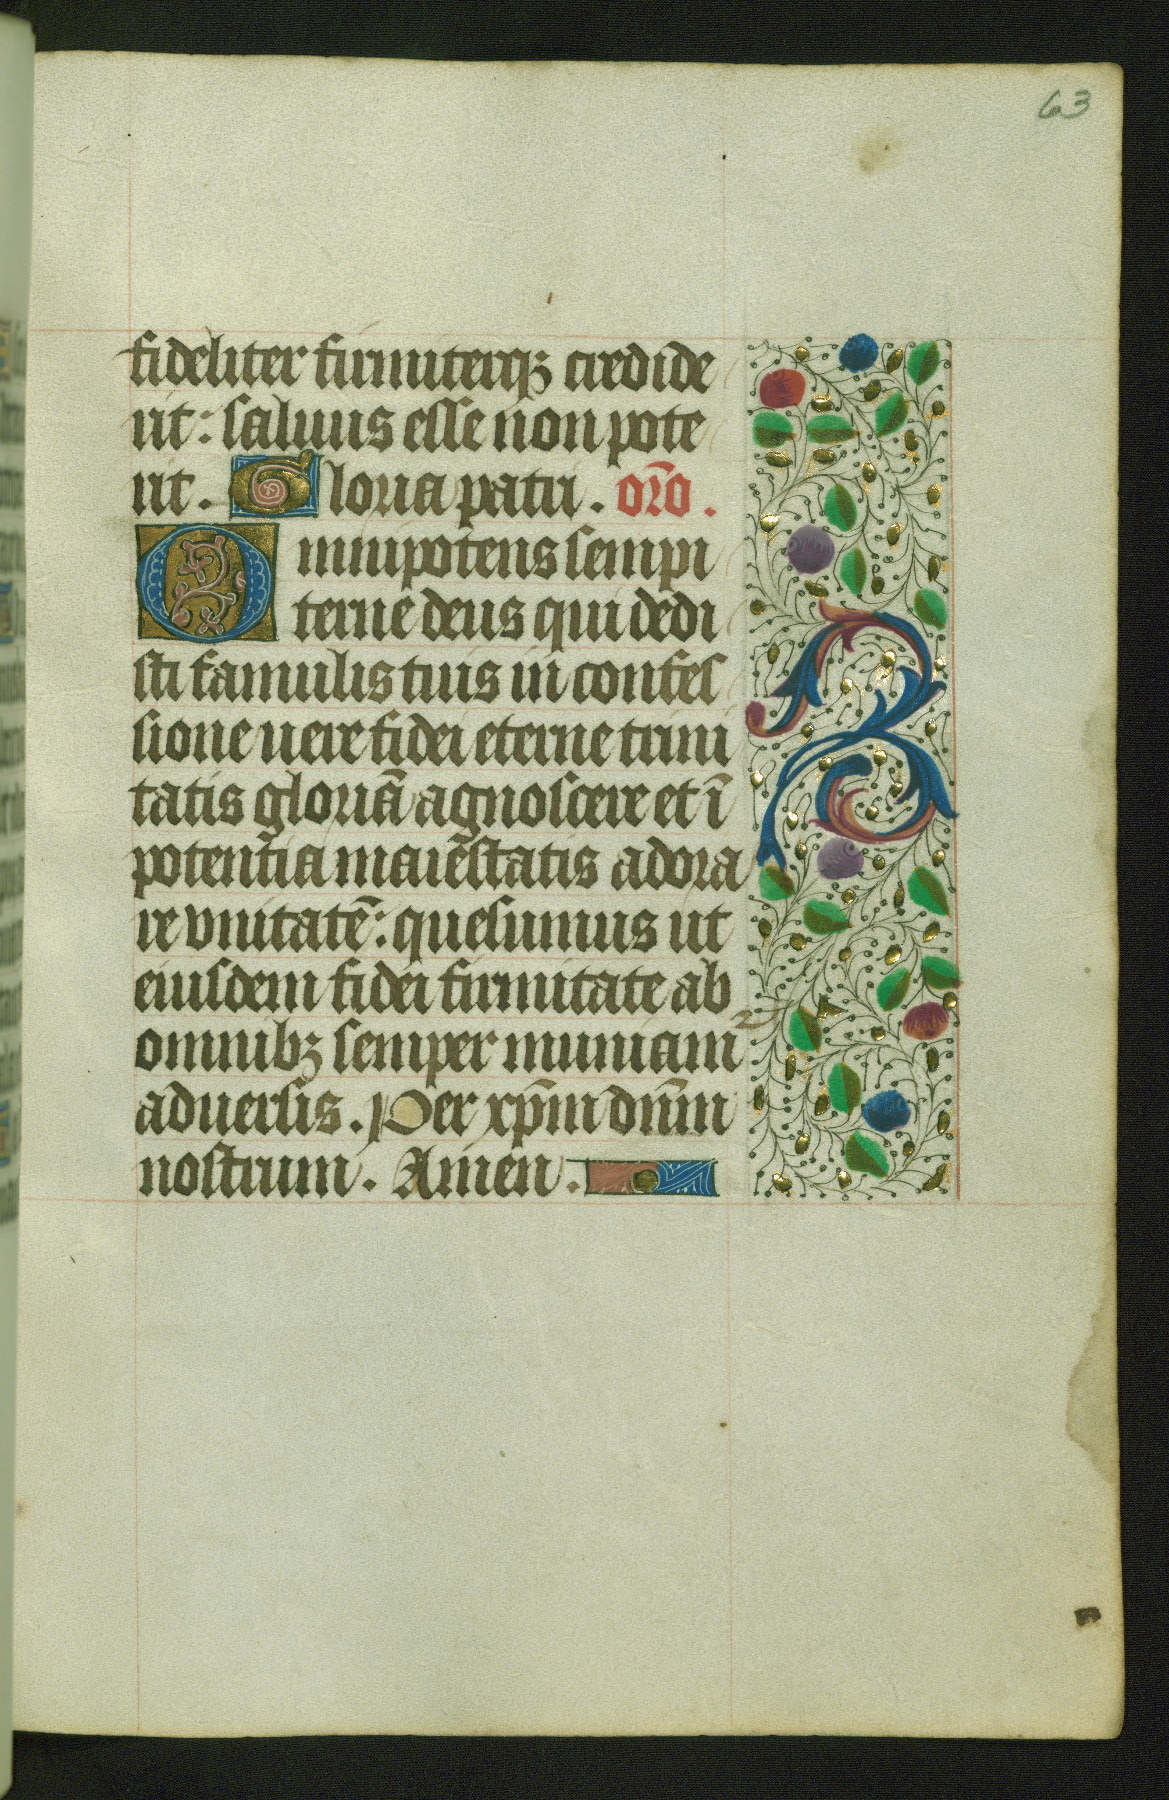 63
fideliter firmiterqꝫ credide
rit: saluus esse non pote
rit. Gloria patri. or̄o.
Omnipotens sempi
terne deus qui dedi
sti famulis tuis in confes
sione uere fidei eterne trini
tatis gloriā agnoscere et ī
potentia maiestatis adora
re vnitatē: quesumus ut
eiusdem fidei firmitate ab
omnibꝫ semper muniam²
aduersis. Per xp̄m dn̄m
nostrum. Amen.